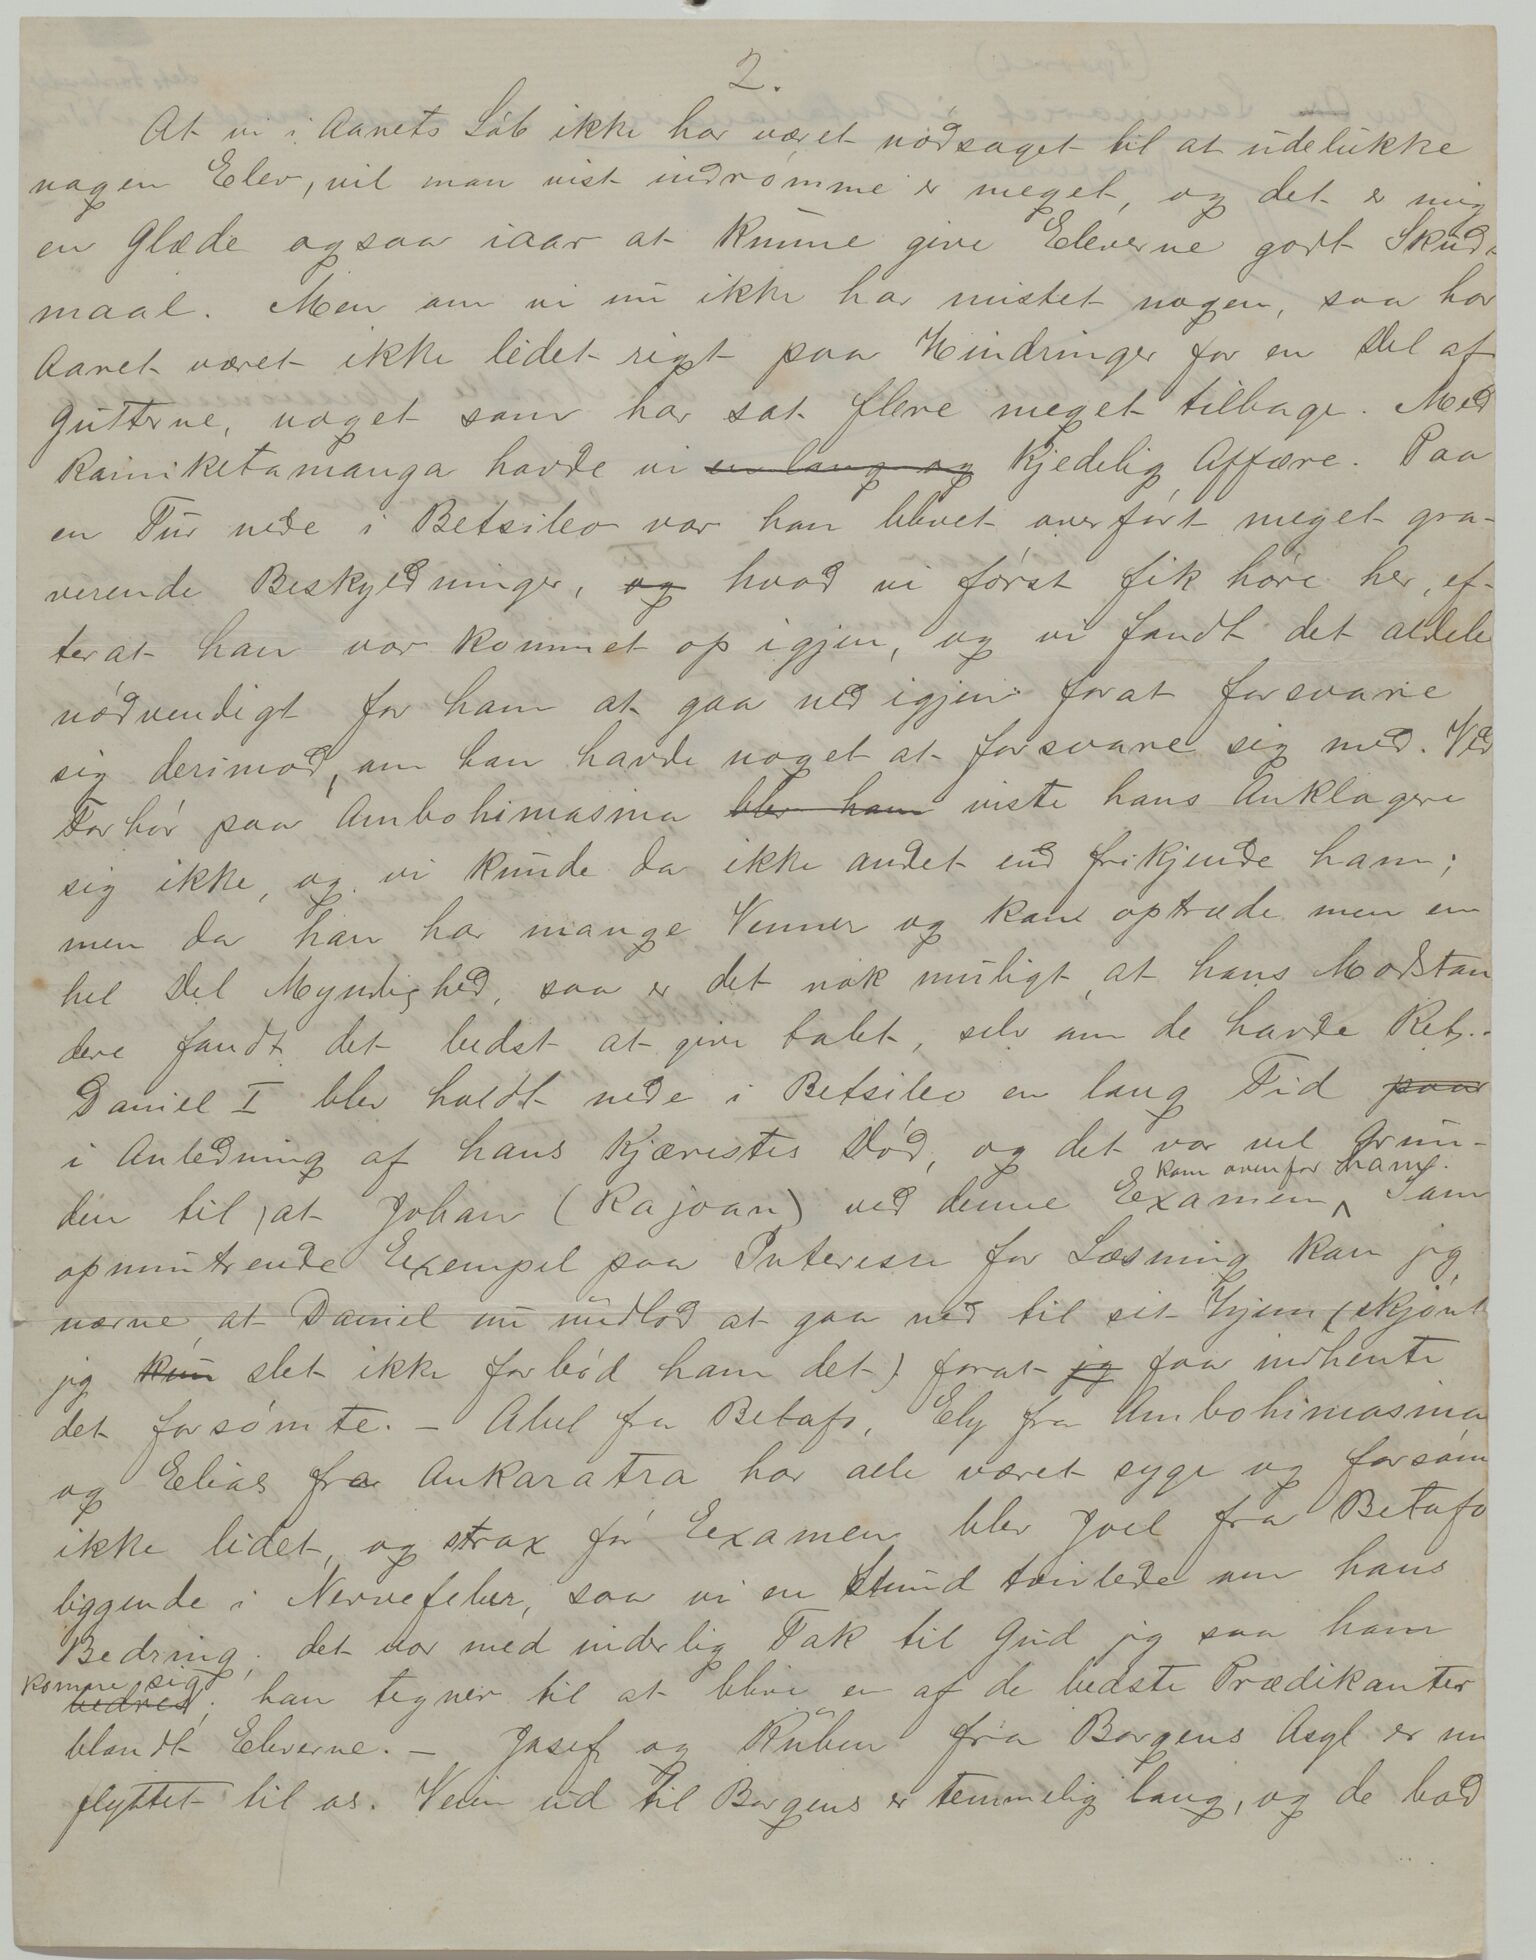 2.
At vi i Aarets Løb ikke har været nødsaget til at udelukke
nogen Elev, vil man vist indrømme er meget, og det er mig
en Glæde ogsaa iaar at kunne give Eleverne godt Skuds-
maal. Men om vi nu ikke har mistet nogen, saa har
Aaret været ikke lidet rigt paa Hindringer for en Del af
Gutterne, noget som har sat flere meget tilbage. Med
Rainiketamanga havde vi en lang og kjedelig Affære. Paa
en Tur nede i Betsileo var han blevet overført meget gra-
verende Beskyldninger, og hvad vi først fik høre her, ef-
terat han var kommet op igjen, og vi fandt det aldele
nødvendigt for ham at gaa ned igjen forat forsvare
sig derimod, om han havde noget at forsvare sig med. Ved
Forhør paa Ambohimasina blev ham viste hans Anklagere
sig ikke, og vi kunde da ikke andet end frikjende ham;
men da han har mange Venner og kan optræde men en
hel Del Myndighed, saa er det nok muligt, at hans Modstan
dere fandt det bedst at give tabt, selv om de havde Ret.
Daniel I blev holdt nede i Betsileo en lang Tid paa
i Anledning af hans Kjærestes Død, og det var vel Grun-
kom ovenfor ham.
den til, at Johan (Rajoan) ved denne Examen ^ Som
opmuntrende Exempel paa Interesse for Læsning kan jeg
nævne, at Daniel nu undlod at gaa ned til sit Hjem (skjønt
jeg kun slet ikke forbød ham det) forat jg faa indhente
det forsømte. – Abel fra Betafo, Ely fra Ambohimasina
og Elias fra Ankaratra har alle været syge og forsøm
ikke lidet, og strax før Examen blev Joel fra Betafo
liggende i Nervefeber, saa vi en Stund tvivlede om hans
Bedring; det var med inderlig Tak til Gud jeg saa ham
komme sig
bedres; han tegner til at blive en af de bedste Prædikanter
blandt Eleverne. – Josef og Ruben fra Borgens Asyl er nu
flyttet til os. Veien ud til Borgens er temmelig lang, og de bad